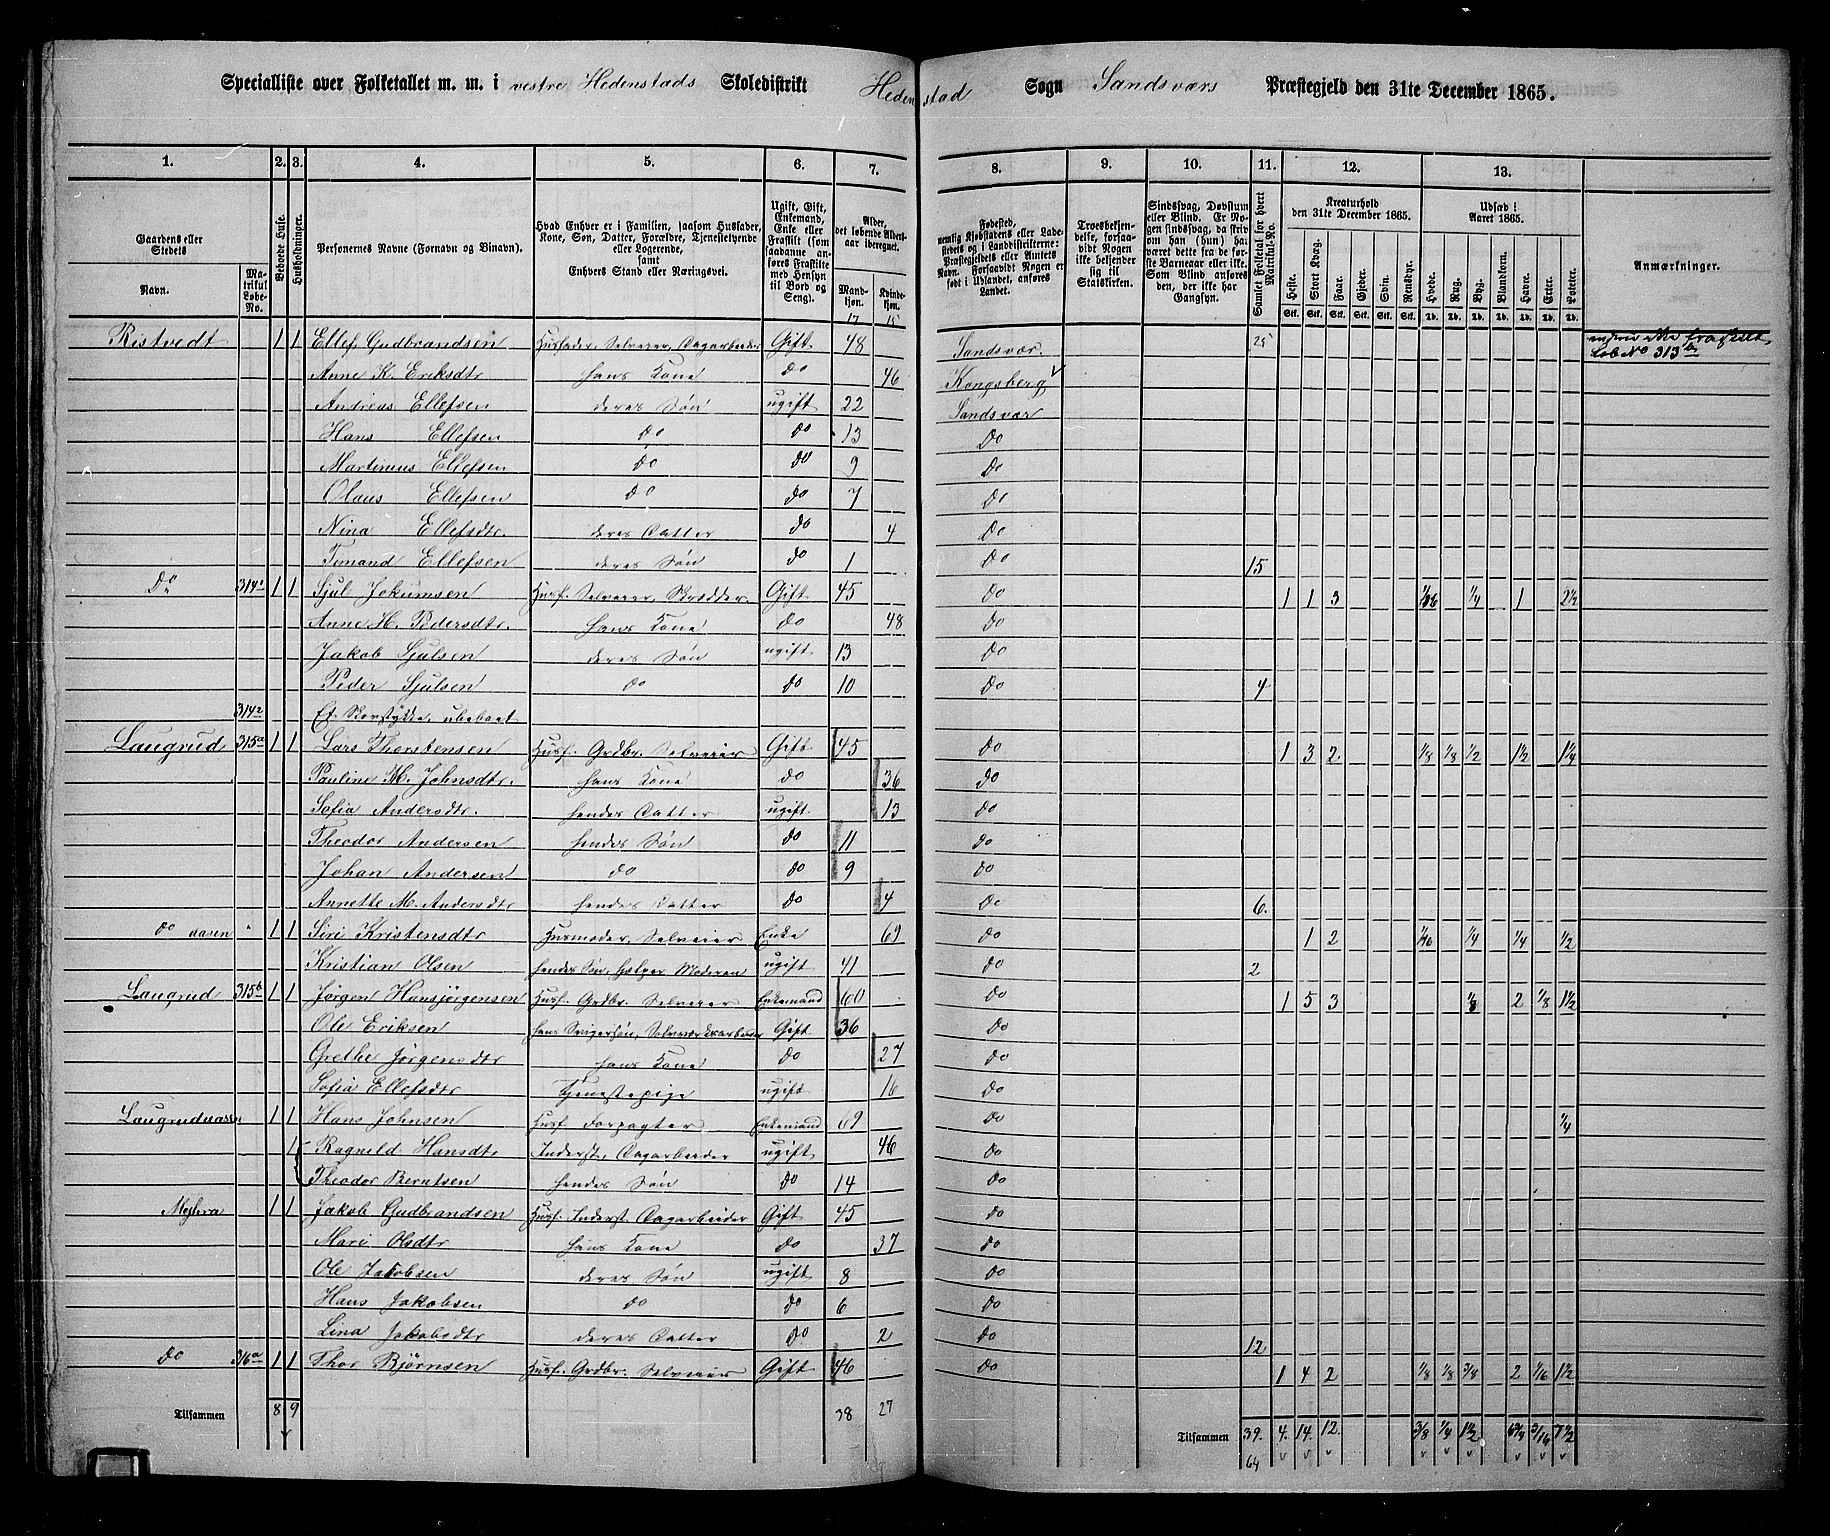 Specialliste over Folketallet m. m. i vestre Hedenstads Skoledistrikt Hedenstad Sogn Sandsværs Præstegjeld den 31te December 1865.
1. 2. 3. 4. 5. 6. 7. 8. 9. 10. 11. 12. 13.
Gaardens eller Stedets Navn. Matrikul Løbe-No.
Beboede Huse.
Husholdninger.
Personernes Navne (Fornavn og Binavn).
Hvad Enhver er i Familien, saasom Husfader, Kone, Søn, Datter, Forældre, Tjenestetyende eller Logerende, samt Enhvers Stand eller Næringsvei.
Ugift, Gift, Enkemand, Enke eller Fraskilt (som saadanne anføres Fraskilte med Hensyn til Bord og Seng).
Alder, det løbende Alders-aar iberegnet. Mandkjøn. Kvindekjøn.
17 15
Fødested, nemlig Kjøbstadens eller Ladestedets og i Landdistrikterne: Præstegjeldets eller Anneks Navn. Forsaavidt Nogen er født i Udlandet, anføres Landet.
Troesbekjendelse, forsaavidt Nogen ikke bekjender sig til Statskirken.
Sindssvag, Døvstum eller Blind. Er Nogen sindssvag, da skriv om han (hun) har været dette fra de første Barneaar eller ikke. Som Blind anføres den, der ikke har Gangsyn.
Samlet Folketal for hvert Matrikul-No.
Kreaturhold den 31te December 1865. Heste. Stort Kvæg. Faar. Gjeder. Svin. Rensdyr.
Udsæd i Aaret 1865. Hvede. Rug. Byg. Blandkorn. Havre. Erter. Poteter.
Anmærkninger.
Ristvedt 1 1 Ellef Gudbrandsen Husfader, Selveier, Dagarbeider Gift 48 Sandsvær. 25 Løb No 313
Anne K. Eriksdtr hans Kone do 46 Kongsberg
Andreas Ellefsen deres Søn ugift 22 Sandsvær
Hans Ellefsen do do 13 Do
Martinus Ellefsen do do 9 Do
Olaus Ellefsen do do 7 Do
Nina Ellefsdtr. deres Datter do 4 Do
Timand Ellefsen deres Søn do 1 Do 15
Do 314 1 1 1 Sjul Jokumsen Husf. Selveier, Skrædder Gift 45 Do 1 1 3 1/16 1/4 1 2 1/2
Anne H. Pedersdtr. hans Kone do 48 Do
Jakob Sjulsen deres Søn ugift 13 Do
Peder Sjulsen do do 10 Do 4
314 2 Et Skovstykke, ubeboet
Laugrud 315a 1 1 Lars Thorstensen Husf. Grdbr. Selveier Gift 45 Do 1 3 2 1/8 1/8 1/2 1 1/2 1 1/4
Pauline M. Johnsdtr. hans Kone do 36 Do
Sofia Andersdtr. hendes Datter ugift 13 Do
Theodor Andersen hendes Søn do 11 Do
Johan Andersen do do 9 Do
Annette M. Andersdtr hendes Datter do 4 Do 6.
do aasen " 1 1 Siri Kristensdtr Husmoder, Selveier Enke 69 Do 1 2 1/16 1/4 1/4 1/2
Kristian Olsen hendes Søn, hjelper Moderen ugift 41 Do 2
Laugrud 315b 1 1 Jørgen Hansjørgensen Husf. Grdbr. Selveier Enkemand 60 Do 1 5 3 1/8 2 1/8 1 1/2
Ole Eriksen hans Svigersøn, Sølvværksarbeider Gift 36 Do
Grethe Jørgensdtr hans Kone do 27 Do
Sofia Ellefsdtr Tjenestepige ugift 16 Do
Laugrudaasen 1 1 Hans Johnsen Husf. Forpagter Enkemand 69 Do 1/4
1 Ragnild Hansdtr Inderst, Dagarbeider ugift 46 Do
Theodor Berntsen hendes Søn do 14 Do
1 1 Jakob Gudbrandsen Husf. Inderst, Dagarbeider Gift 45 Do
Mari Olsdtr hans Kone do 37 Do
Ole Jakobsen deres Søn ugift 8 Do
Hans Jakobsen do do 6 Do
Lina Jakobsdtr deres Datter do 2 Do 12
Do 316a 1 1 Thor Bjørnsen Husf. Grdbr. Selveier Gift 46 Do 1 4 2 1/8 1/8 3/8 2 1/16 1 1/2
Tilsammen 8 9 38 27 Tilsammen 39. 4. 14. 12. 3/8 1/4 1 1/2 6 3/4 3/16 7 1/2
64